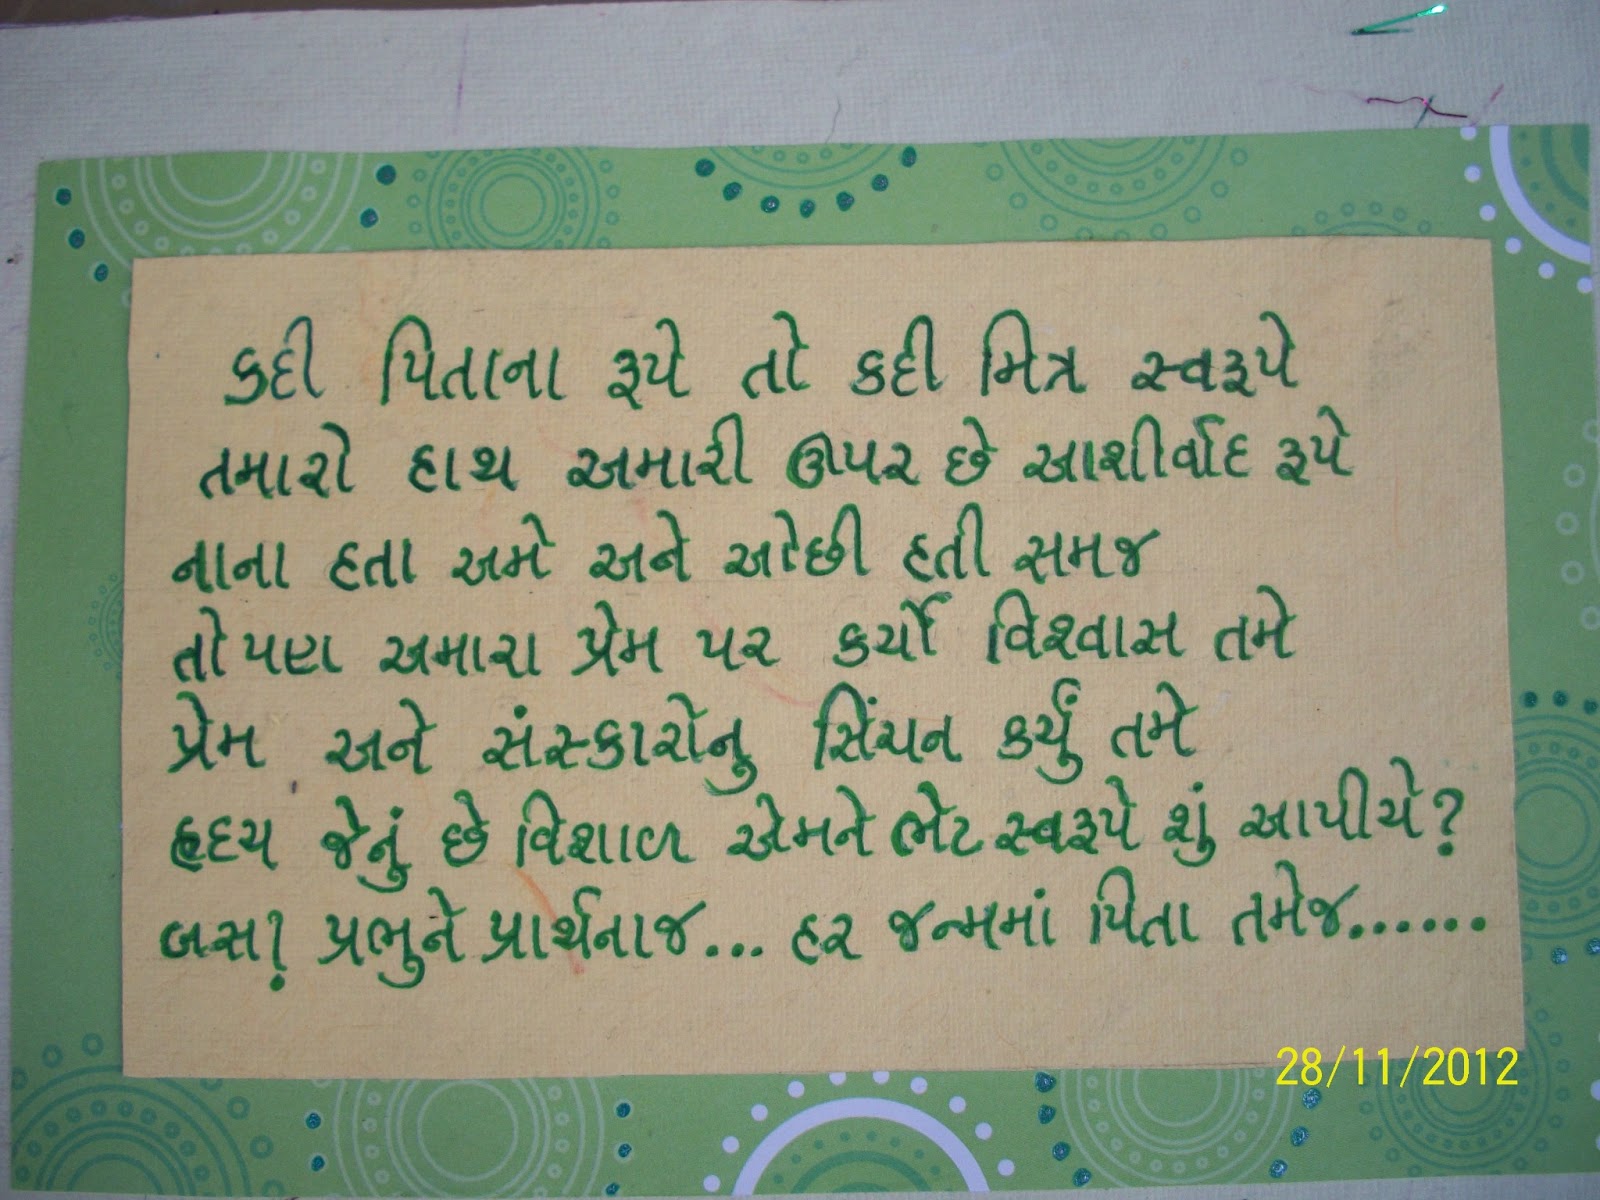 કદી પિતાના રૂપે તો કદી મિત્ર સ્વરૂપે
તમારો હાથ અમારી ઊપર છે આશીર્વાદ રૂપે
નાના હતા અમે અને ઓછી હતી સમજ
તો પણ અમારા પ્રેમ પર કર્યો વિશ્વાસ તમે
પ્રેમ અને સંસ્કારોનુ સિંચન કર્યું તમે
હૃદય જેનું છે વિશાળ એમને ભેટ સ્વરૂપે શું આપીયે?
બસ! પ્રભુને પ્રાર્થનાજ... હર જન્મમાં પિતા તમેજ......
28/11/2012